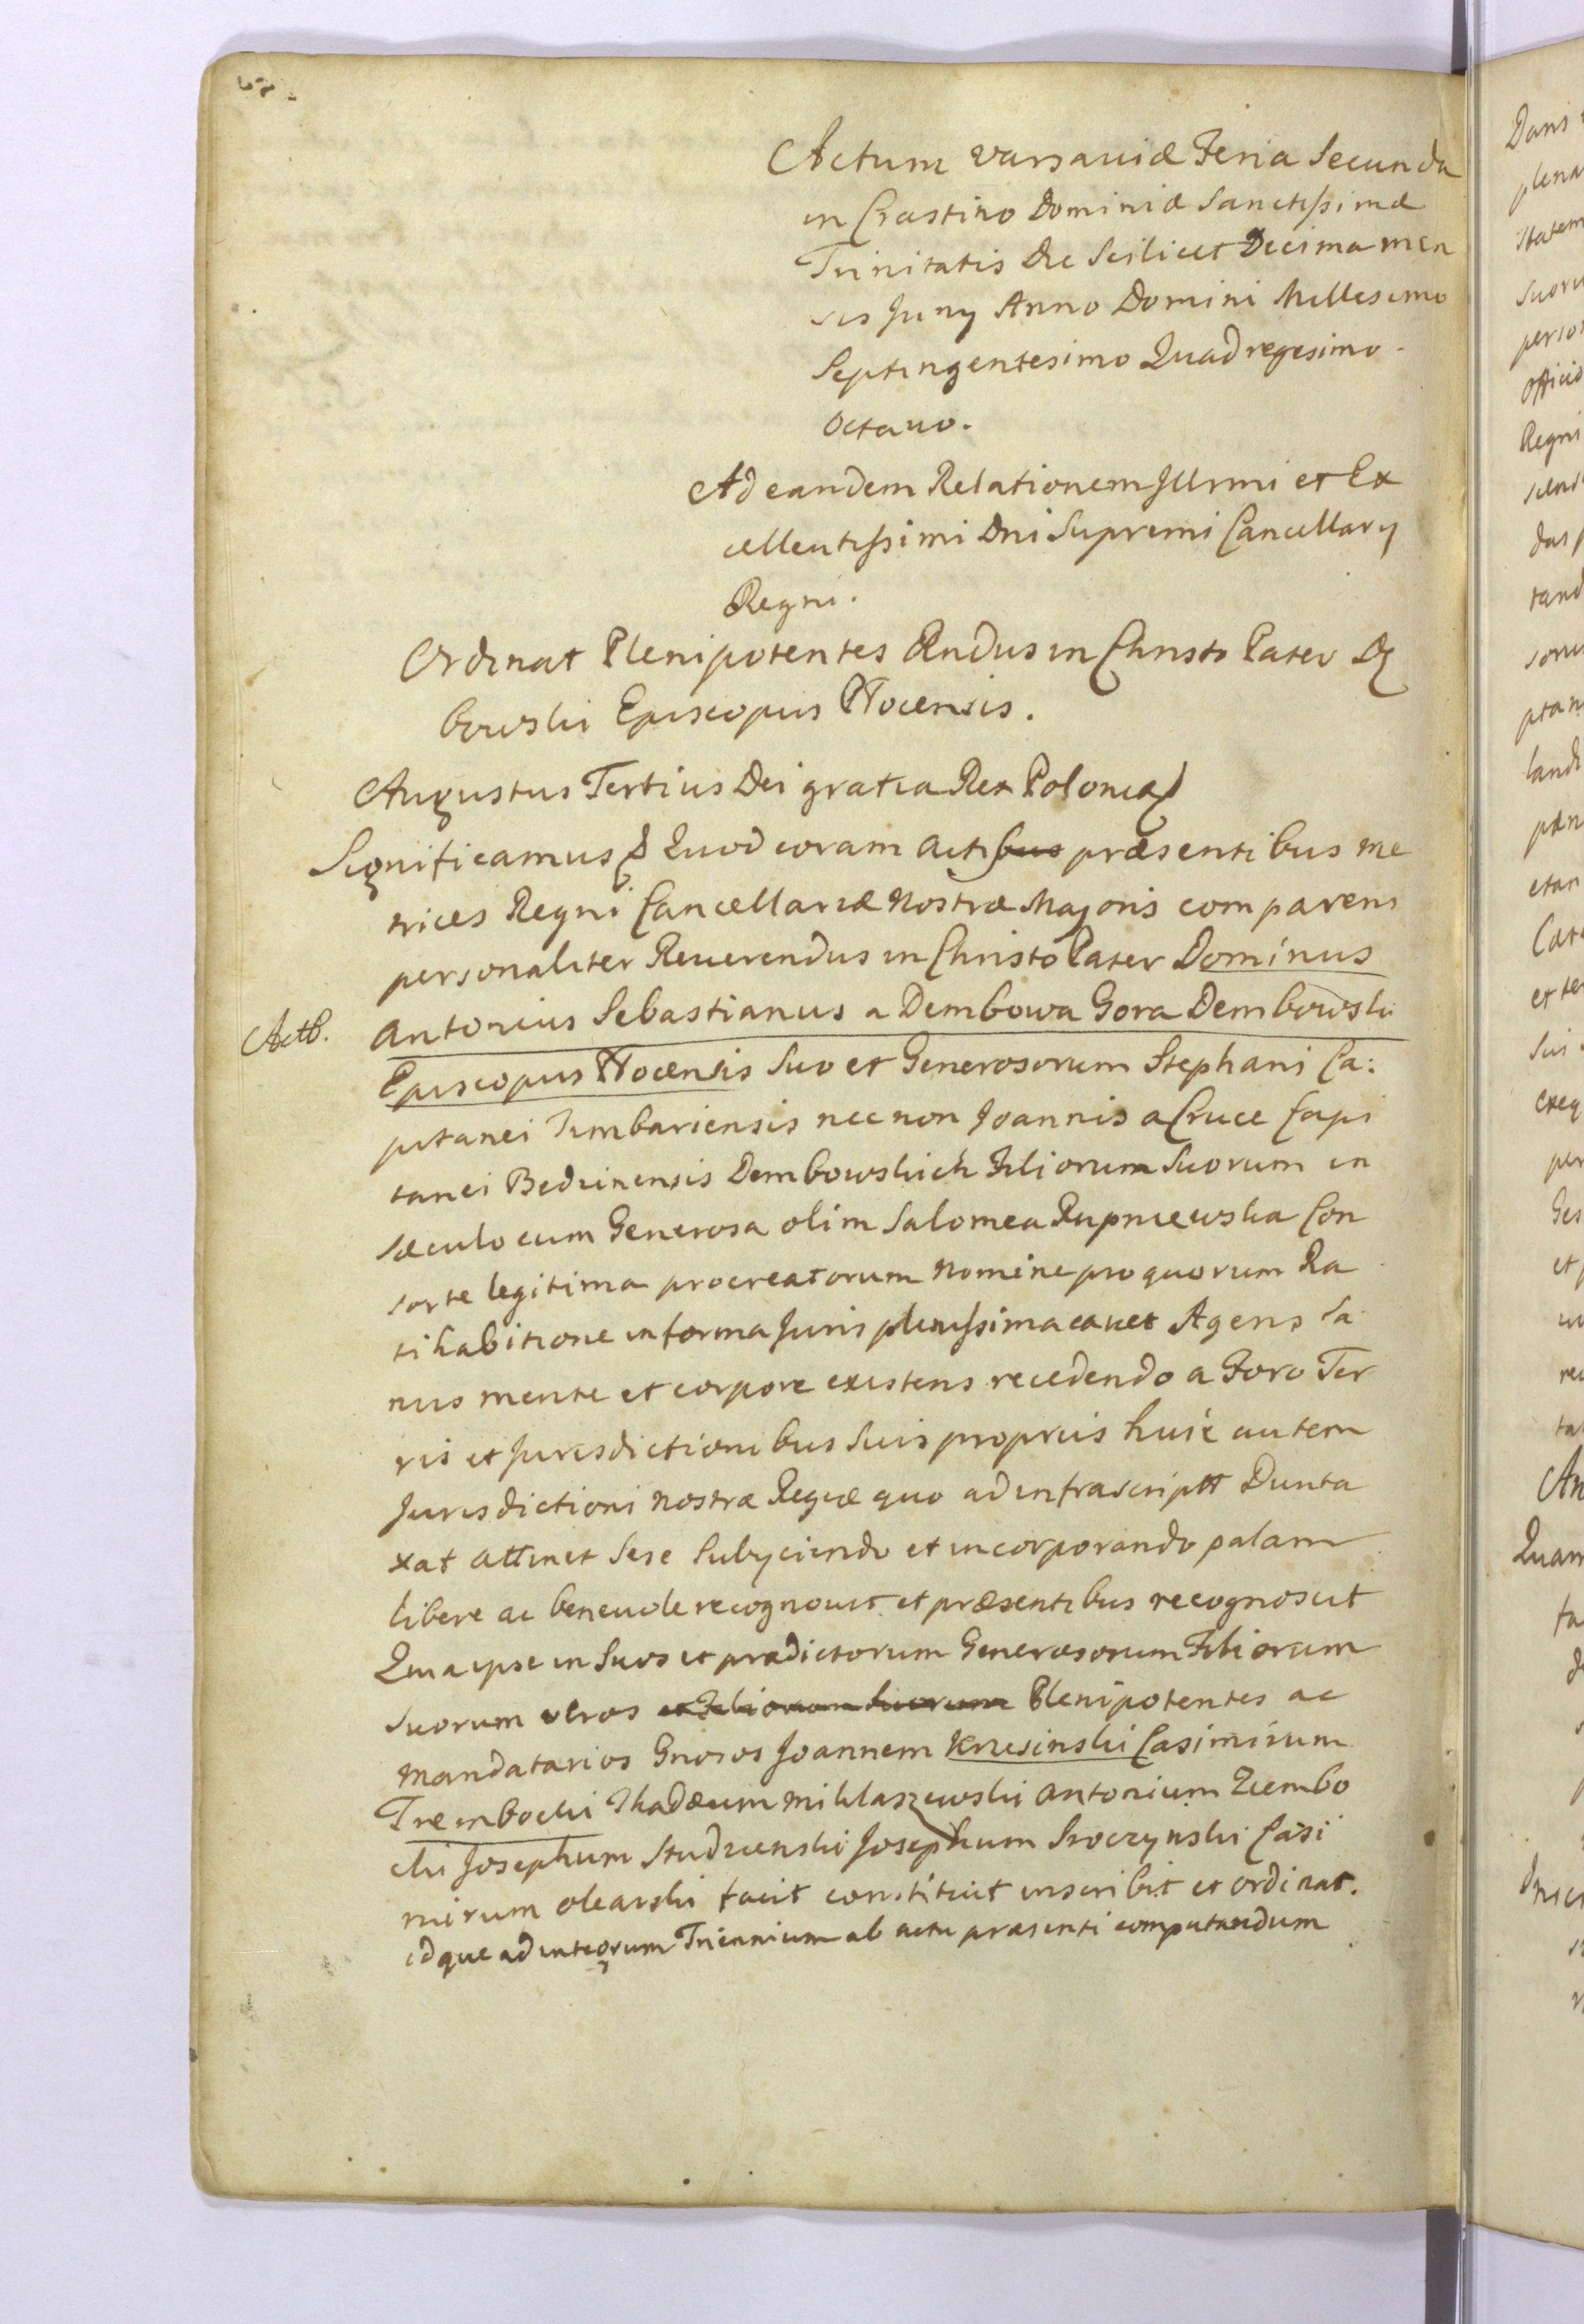 Actum Varsaviæ Feria Secunda
in Crastino Dominicæ Sanctissimæ
Trinitatis Die Scilicet Decima men
sis Juny Anno Domini Millesimo
Septingentesimo Quadregesimo
Octavo.
Ad eandem Relationem Illrmi et Ex
cellentissimi Dni Supremi Cancellary
Regni.
Ordinat Plenipotentes Rndus in Christo Pater Dę
bowski Episcopus Płocensis.
Augustus Tertius Dei gratia Rex Poloniæ
Significamus Quod coram actibus præsentibus me
trices Regni Cancellariæ Nostræ Majoris comparens
personaliter Reverendus in Christo Pater Dominus
Actb.
Antonius Sebastianus a Dembowa Gora Dembowski
Episcopus Płocensis Suo et Generosorum Stephani Ca:
pitanei Tymbariensis nec non Joannis a Cruce Capi
tanei Bedzinensis Dembowskich Filiorum Suorum in
sæculo cum Generosa olim Salomea Rupniewska Con
sorte legitima procreatorum Nomine pro quorum Ra
tihabitione in forma Juris plenissima cavet Agens Sa
nus mente et corpore existens recedendo a Foro Ter
ris et Jurisdictionibus Suis propriis huic autem
Jurisdictioni Nostræ Regiæ quo ad infrascriptt Dunta
xat attinet Sese Subyciendo et incorporando palam
libere ac benevole recognovit et præsentibus recognoscit
Quia ipse in Suos et prædictorum Generosorum Filiorum
Suorum veros et Filiorum Suorum Plenipotentes ac
Mandatarios Gnosos Joannem Krzesinski Casimirum
Trembecki Thadæum Miklaszewski Antonium Ziembo
cki Josephum Studzienski Josephum Skoczynski Casi
mirum Olearski facit constituit inscribit et ordinat.
idque ad integrum Triennium ab actu præsenti computandum